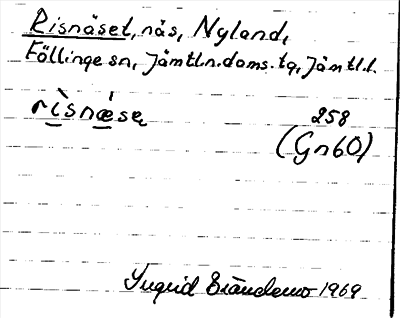 Risnäset, näs, Nyland,
Föllinge sn, Jämtl.n.doms.tg, Jämtl.l.
rìsnǽsa
258
(Gn60)
Ingrid 1969